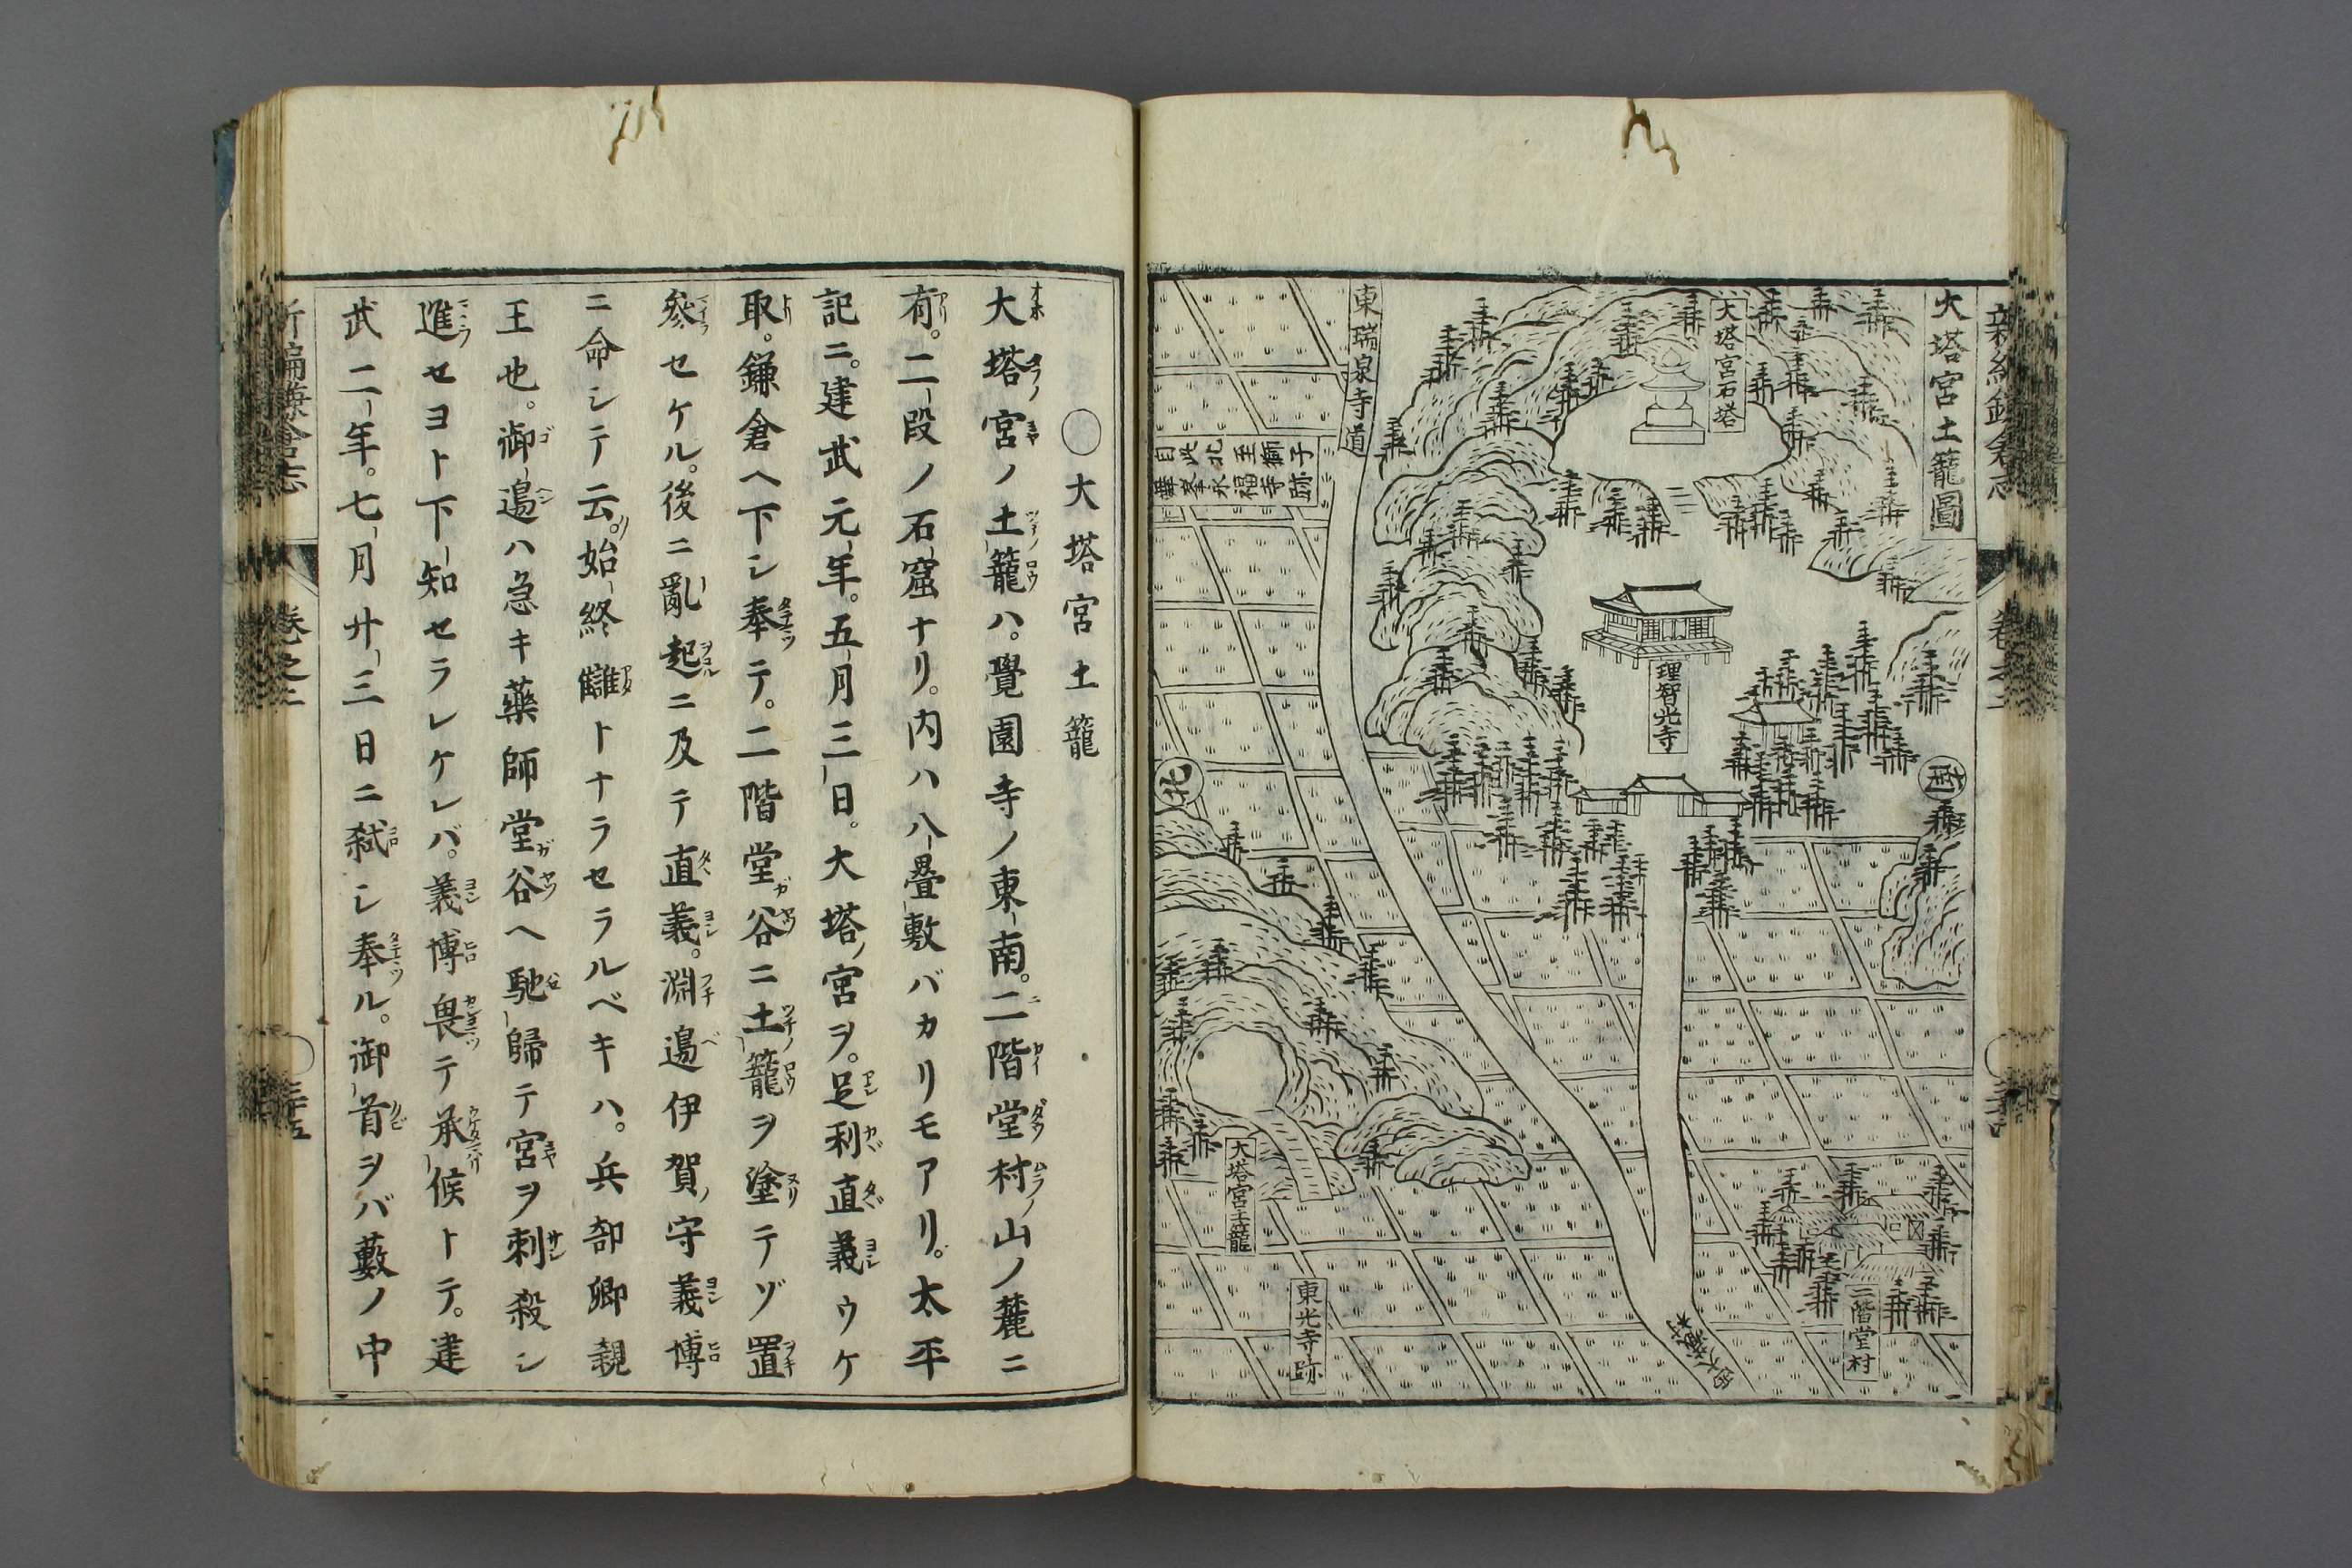 新編鎌倉志
卷之二
大塔宮土籠圖
大塔宮石塔
理智光寺
二階堂村
東瑞泉寺道
子獅至北此自
跡寺福永
北
西
大塔宮土籠
東光寺跡
〇大塔宮土籠
大塔宮ノ土籠ハ。覺園寺ノ東南。二階堂村ノ山ノ麓ニ
有。二段ノ石窟ナリ。内ハ八疊敷バカリモアリ。太平
記ニ。建武元年。五月三日。大塔ノ宮ヲ。足利直義ウケ
取。鎌倉ヘ下シ奉テ。二階堂谷ニ土籠ヲ塗テゾ置
參セケル。後ニ亂起ニ及テ直義。淵邉伊賀ノ守義博
ニ命シテ云。始終讎トナラセラルベキハ。兵部卿親
王也。御邉ハ急キ藥師堂谷ヘ馳歸テ宮ヲ刺殺シ
進セヨト下知セラレケレバ。義博畏テ承候トテ。建
武二年。七月廿三日ニ弑シ奉ル。御首ヲバ藪ノ中
新編鎌倉志
卷之二
三十五